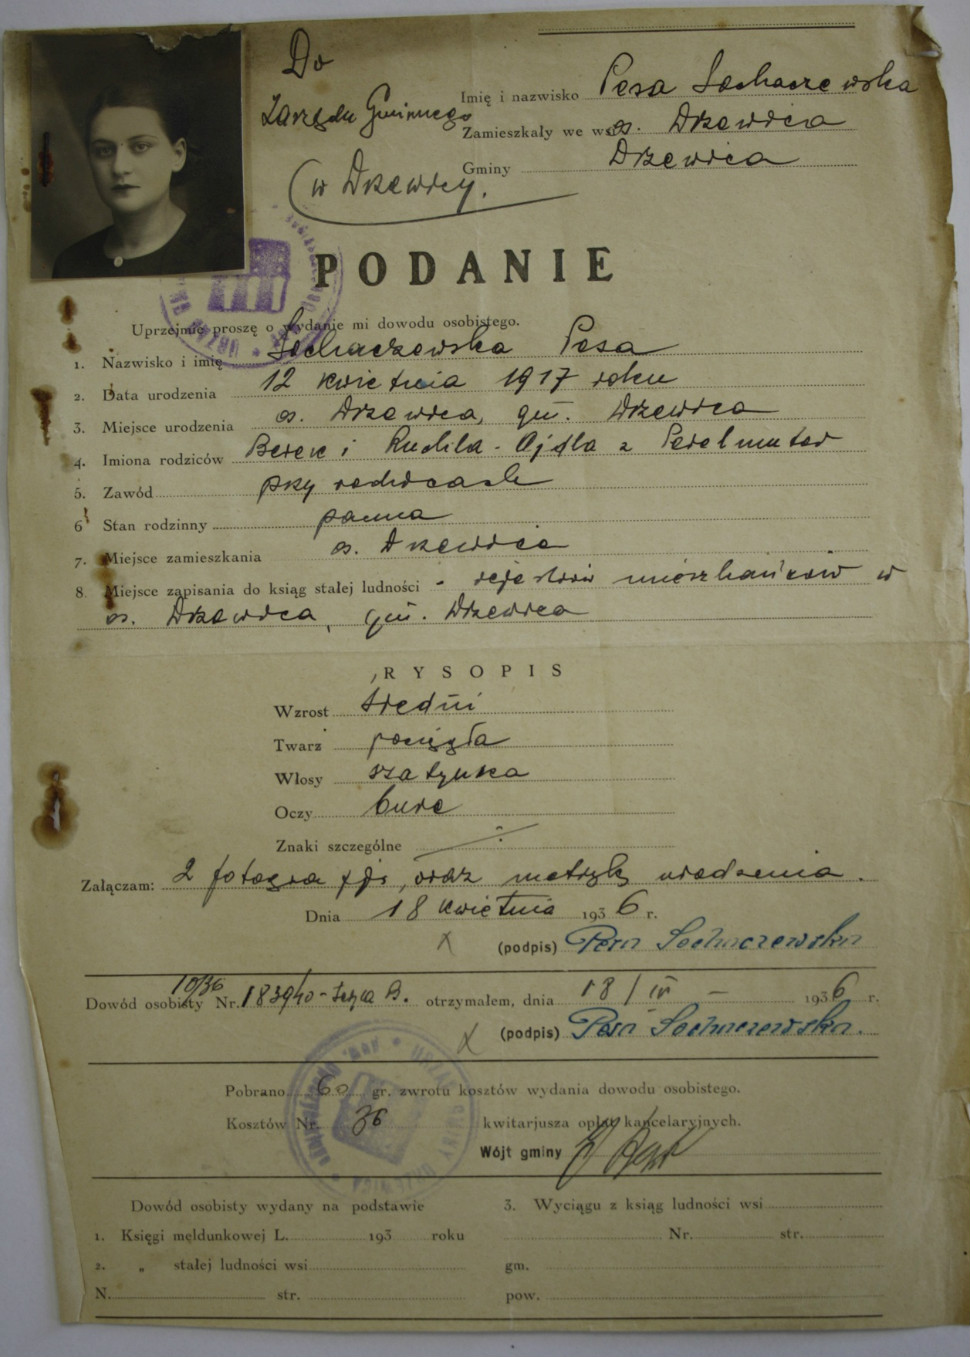 Do
Zarządu Gminnego
(w Drzewicy.
Imię i nazwisko Pesa Sochaczewska
Zamieszkały we wsi os. Drzewica
Gminy Drzewica
PODANIE
Uprzejmie proszę o wydanie mi dowodu osobistego.
1. Nazwisko i imię Sochaczewska Pesa
2. Data urodzenia 12 kwietnia 1917 roku
3. Miejsce urodzenia os. Drzewica, gm. Drzewica
4. Imiona rodziców Berek i Ruchla-Ajdla z Perelmuter
5. Zawód przy rodzicach
6 Stan rodzinny panna
7. Miejsce zamieszkania os. Drzewica
8. Miejsce zapisania do ksiąg stałej ludności - rejestrów mieszkańców w
os. Drzewica, gm. Drzewica
RYSOPIS
Wzrost średni
Twarz pociągła
Włosy szatynka
Oczy bure
Znaki szczególne
Załączam: 2 fotografje, oraz metrykę urodzenia.
Dnia 18 kwietnia 1936 r.
x (podpis) Pesa Sochaczewska
10/36
Dowód osobisty Nr. 18390/40 - B. otrzymałem, dnia 18/IV - 1936 r.
x (podpis) Pesa Sochaczewska.
Pobrano 60 gr. zwrotu kosztów wydania dowodu osobistego.
Kosztów Nr. 36 kwitarjusza opłat kancelaryjnych.
Wójt gminy
Dowód osobisty wydany na podstawie
1. Księgi meldunkowej L. 193 roku
2. „ stałej ludności wsi
N. str.
3. Wyciągu z ksiąg ludności wsi
Nr. str.
gm.
pow.